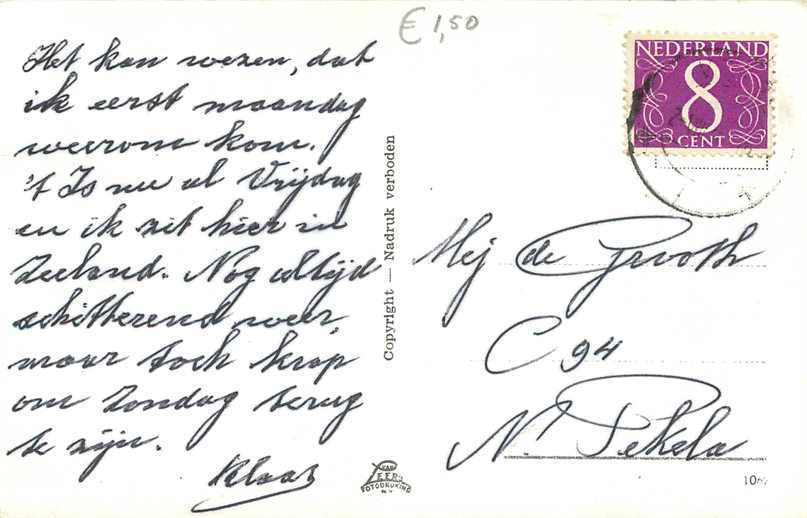 € 1,50
Het kan wezen, dat
ik eerst maandag
weerom kom.
't Is nu al Vrijdag
en ik zit hier in
Zeeland. Nog altijd
schitterend weer,
maar toch krap
om Zondag terug
te zijn.
Klaas
Copyright — Nadruk verboden
VAN LEER'S
FOTODRUKIND.
N.V.
NEDERLAND
8
CENT
Mej de Grooth
C 94
N. Pekela